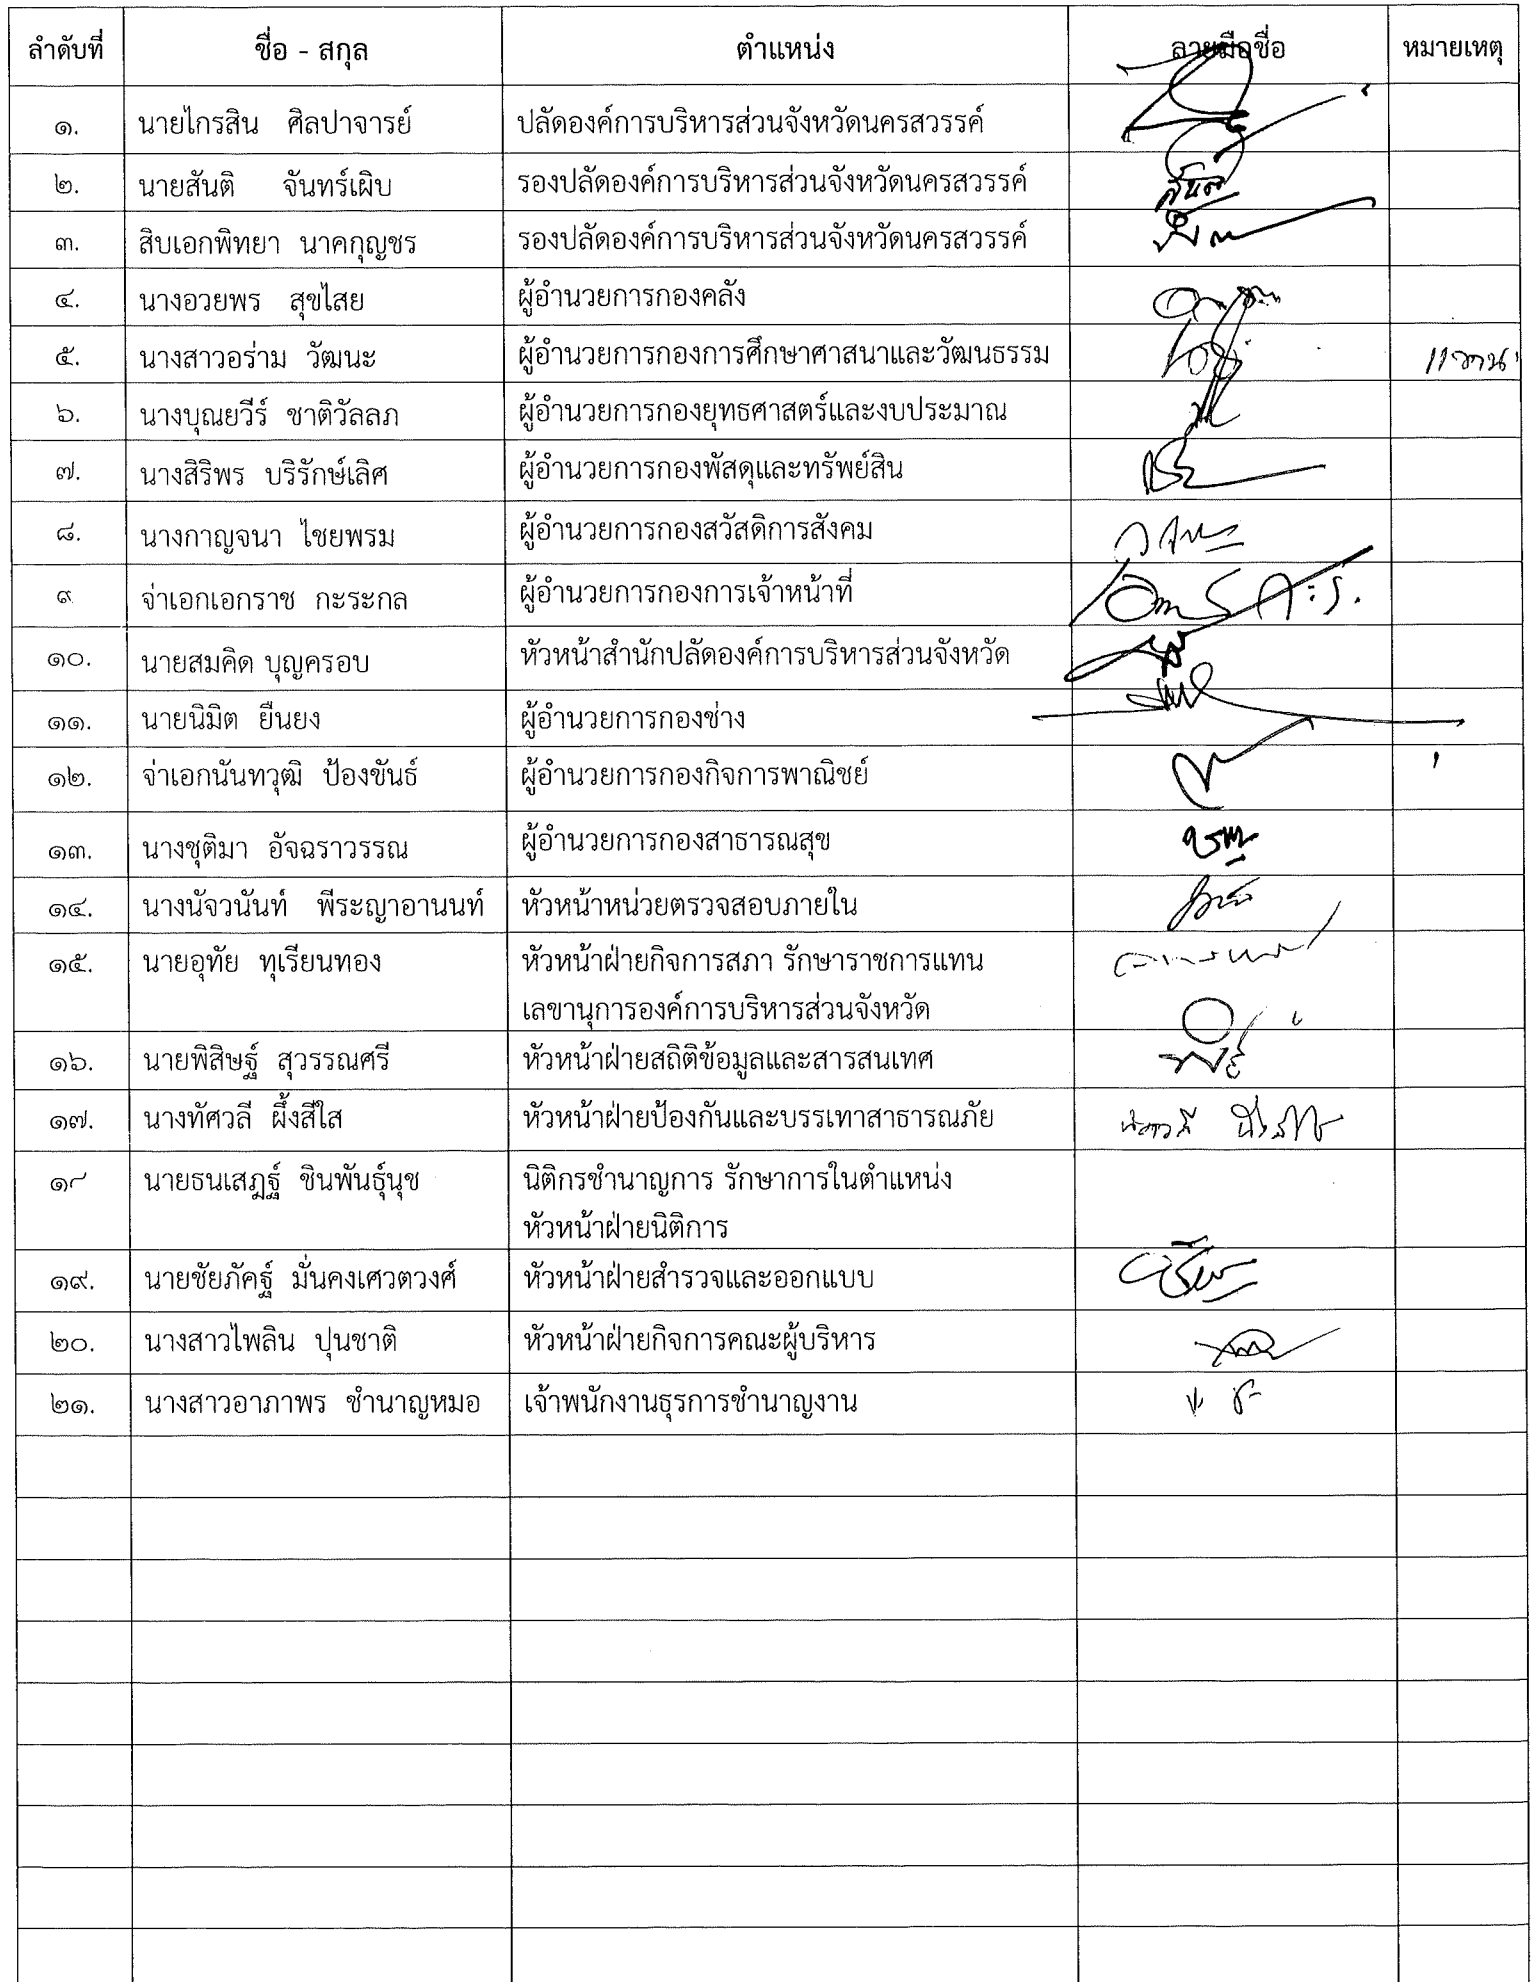 ลำดับที่ ชื่อ - สกุล ตำแหน่ง ลายมือชื่อ หมายเหตุ
๑. นายไกรสิน ศิลปาจารย์ ปลัดองค์การบริหารส่วนจังหวัดนครสวรรค์
๒. นายสันติ จันทร์เผิบ รองปลัดองค์การบริหารส่วนจังหวัดนครสวรรค์
๓. สิบเอกพิทยา นาคกุญชร รองปลัดองค์การบริหารส่วนจังหวัดนครสวรรค์
๔. นางอวยพร สุขไสย ผู้อำนวยการกองคลัง
๕. นางสาวอร่าม วัฒนะ ผู้อำนวยการกองการศึกษาศาสนาและวัฒนธรรม
๖. นางบุณยวีร์ ชาติวัลลภ ผู้อำนวยการกองยุทธศาสตร์และงบประมาณ
๗. นางสิริพร บริรักษ์เลิศ ผู้อำนวยการกองพัสดุและทรัพย์สิน
๘. นางกาญจนา ไชยพรม ผู้อำนวยการกองสวัสดิการสังคม
๙ จ่าเอกเอกราช กะระกล ผู้อำนวยการกองการเจ้าหน้าที่
๑๐. นายสมคิด บุญครอบ หัวหน้าสำนักปลัดองค์การบริหารส่วนจังหวัด
๑๑. นายนิมิต ยืนยง ผู้อำนวยการกองช่าง
๑๒. จ่าเอกนันทวุฒิ ป้องขันธ์ ผู้อำนวยการกองกิจการพาณิชย์
๑๓. นางชุติมา อัจฉราวรรณ ผู้อำนวยการกองสาธารณสุข
๑๔. นางนัจวนันท์ พีระญาอานนท์ หัวหน้าหน่วยตรวจสอบภายใน
๑๕. นายอุทัย ทุเรียนทอง หัวหน้าฝ่ายกิจการสภา รักษาราชการแทน
เลขานุการองค์การบริหารส่วนจังหวัด
๑๖. นายพิสิษฐ์ สุวรรณศรี หัวหน้าฝ่ายสถิติข้อมูลและสารสนเทศ
๑๗. นางทัศวลี ผึ้งสีใส หัวหน้าฝ่ายป้องกันและบรรเทาสาธารณภัย
๑๘ นายธนเสฎฐ์ ชินพันธุ์นุช นิติกรชำนาญการ รักษาการในตำแหน่ง
หัวหน้าฝ่ายนิติการ
๑๙. นายชัยภัคฐ์ มั่นคงเศวตวงศ์ หัวหน้าฝ่ายสำรวจและออกแบบ
๒๐. นางสาวไพลิน ปุนชาติ หัวหน้าฝ่ายกิจการคณะผู้บริหาร
๒๑. นางสาวอาภาพร ชำนาญหมอ เจ้าพนักงานธุรการชำนาญงาน